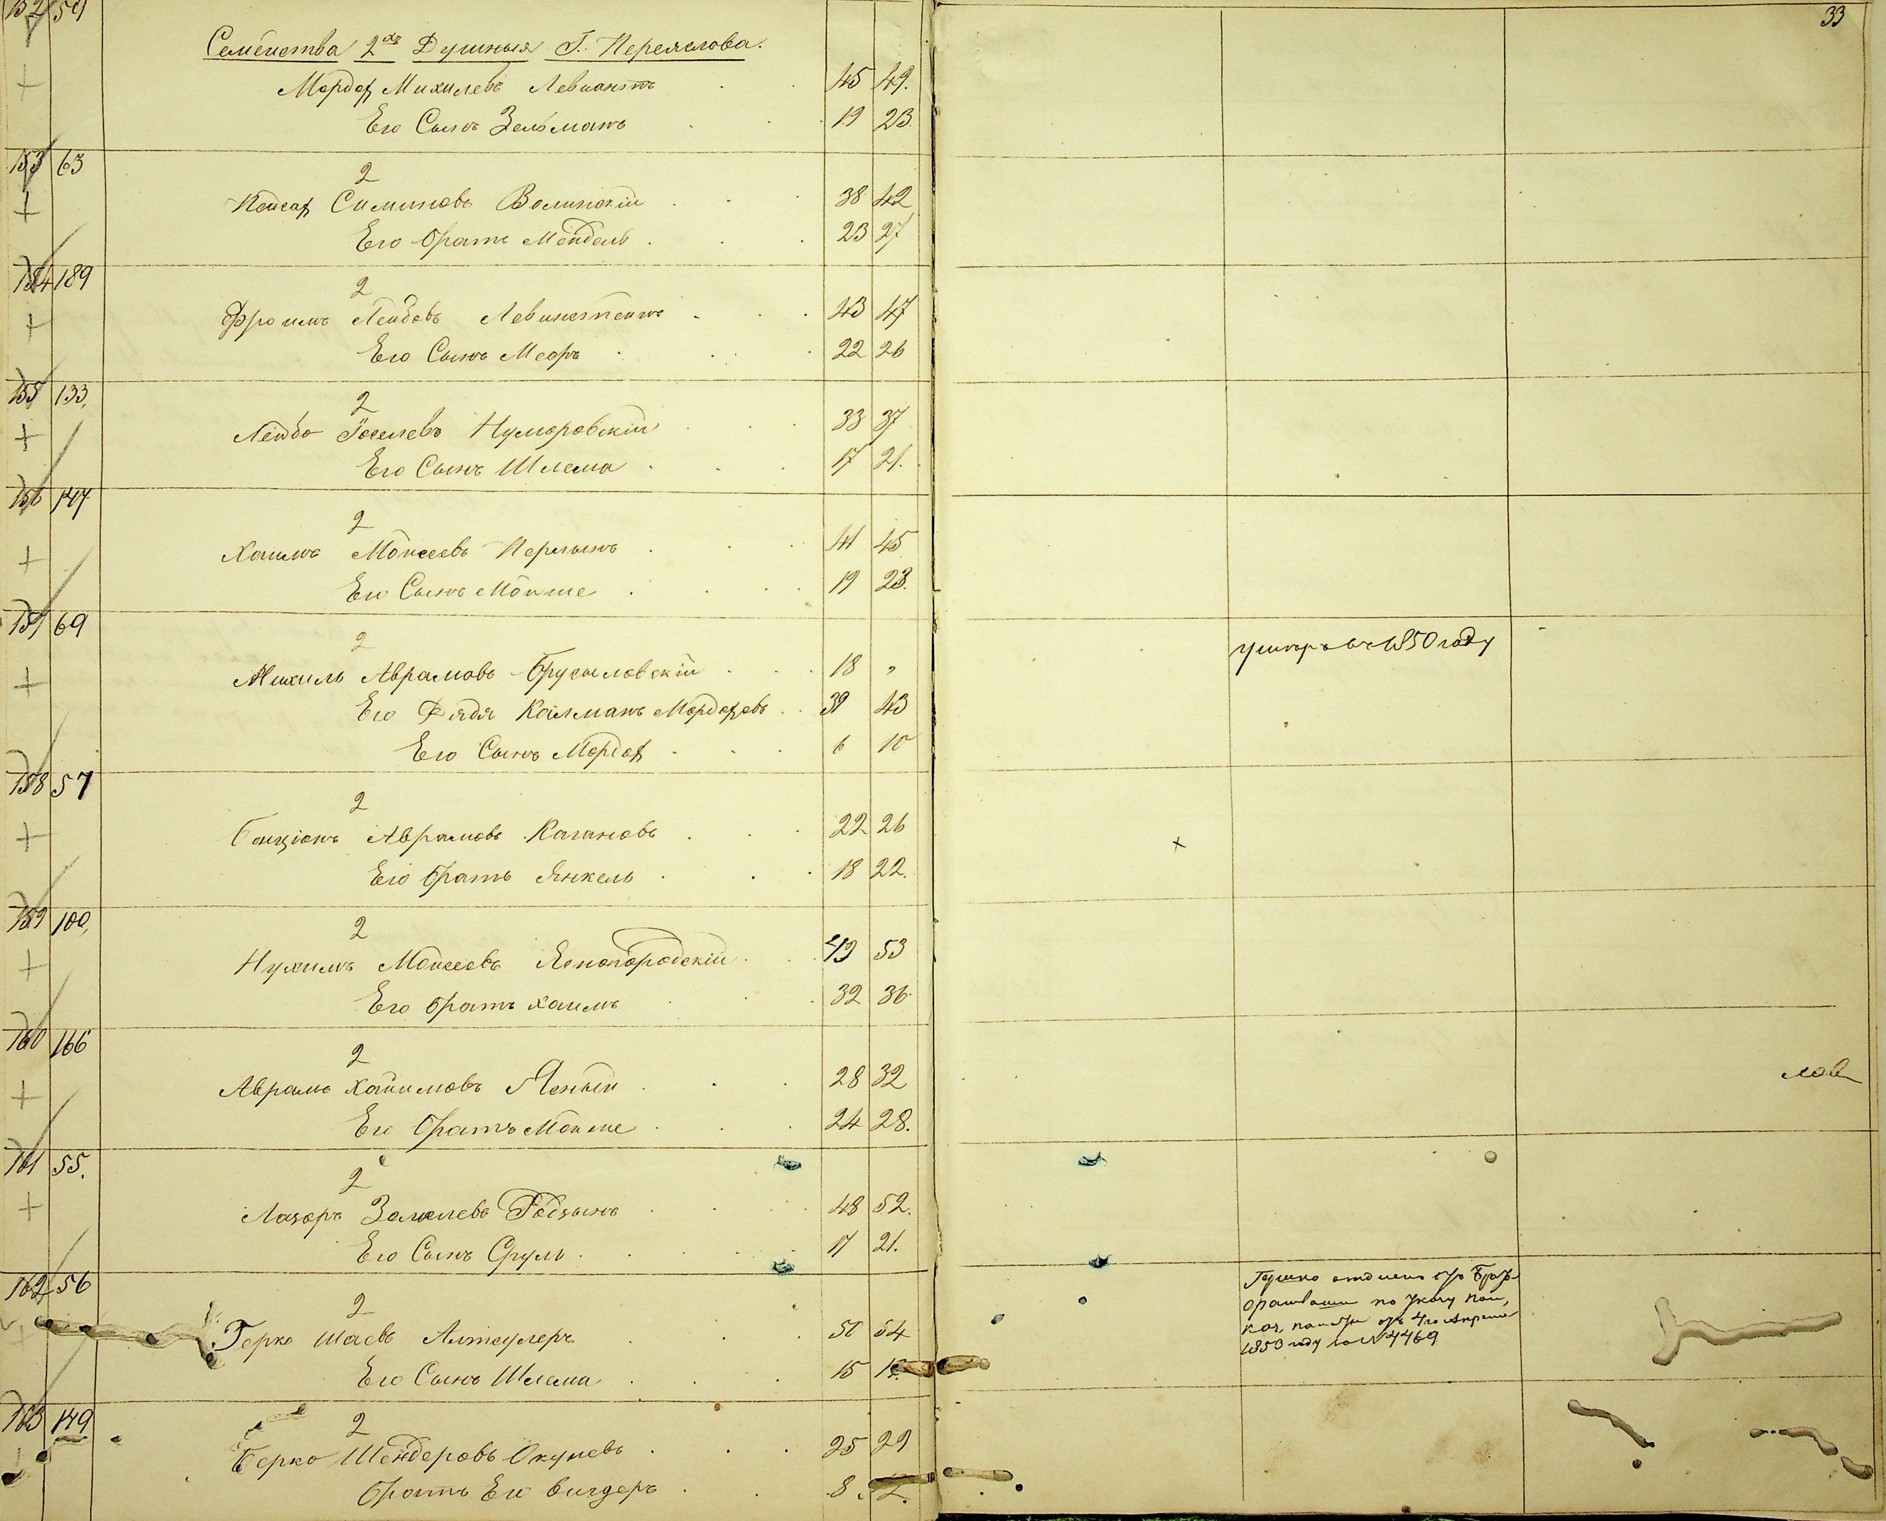 152 59
33
Семейства 2хъ Душныя Г. Переяслова.
Мордух Михилевъ Левиантъ 45 49.
Его Сынъ Зельманъ 19 23
153 63
2
Пейсах Симиновъ Волинскій 38 42
Его братъ Мендель 23 27
154 189
2
Фроимъ Лейбовъ Левинштейнъ 43 47
Его Сынъ Меоръ 22 26
155 133.
2
Лейбо Іоселевъ Нуморовскій 33 37
Его Сынъ Шлема 17 21.
156 147
2
Хаимъ Мойсеевъ Перлынъ 41 45
Его Сынъ Мойше 19 23.
157 69
2
Михиль Аврамовъ Брусиловскій 18 „ умеръ въ 1850 году
Его Дядя Калманъ Мордуховъ 39 43
Его Сынъ Мордух 6 10
158 57
2
Бенціонъ Аврамовъ Кагановъ 22 26
Его братъ Янкель 18 22.
159 100,
2
Нухимъ Мойсеевъ Ясногородскій 49 53
Его братъ Хаимъ 32 36
160 166
2
Аврамъ Хаимовъ Ясный 28 32
Его братъ Мойше 24 28.
161 55.
2
Лазоръ Залмелевъ Родзынъ 48 52.
Его Сынъ Сруль 17 21.
162 56
2
Герко Шаевъ Алтшулеръ 50 54
Его Сынъ Шлема 15
по указу
1853 году за № 4469
163 149
2
Берко Шендеровъ Окуневъ 25 29
Братъ Его Вигдоръ 8